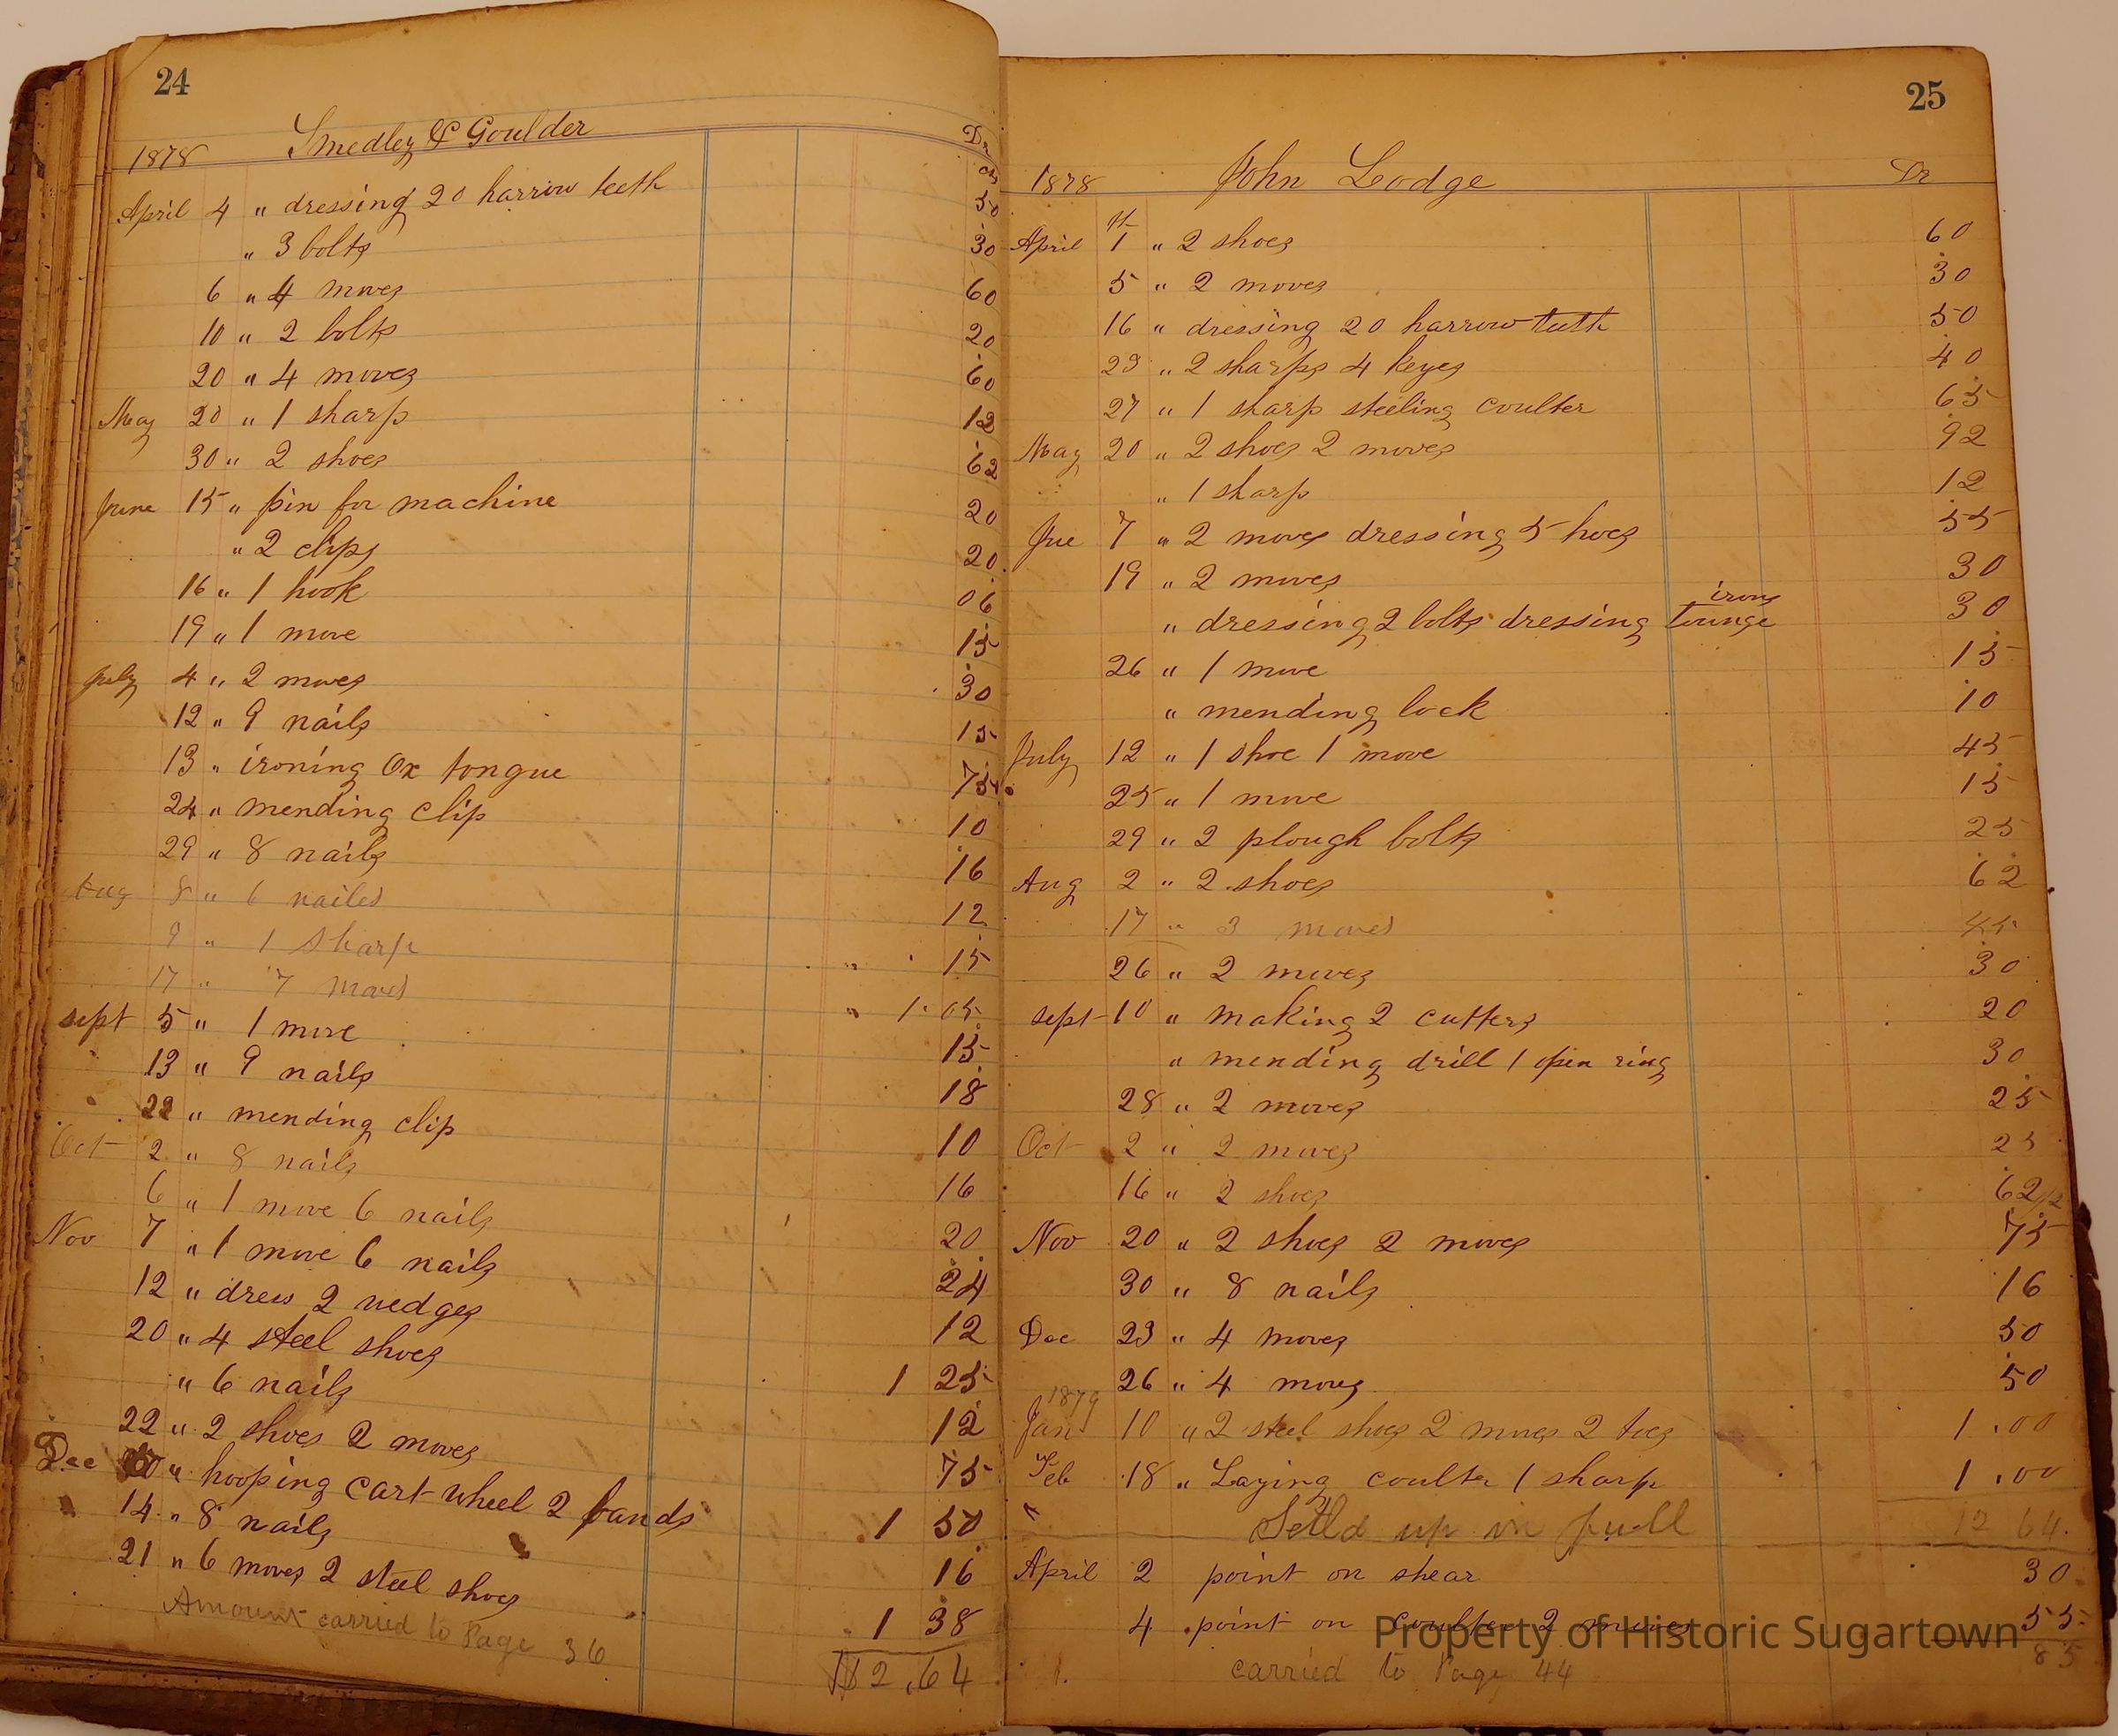 24
Smedley & Goulder
1878 Dr
cts
April 4 " dressing 20 harrow teeth 50
" 3 bolts 30
6 " 4 moves 60
10 " 2 bolts 20
20 " 4 moves 60
May 20 " 1 sharp 12
30 " 2 shoes 62
June 15 " pin for machine 20
" 2 clips 20
16 " 1 hook 06
19 " 1 move 15
July 4 " 2 moves 30
12 " 9 nails 15
13 " ironing Ox tongue 75
24 " mending clip 10
29 " 8 nails 16
Aug 8 " 6 nailes 12
9 " 1 sharp " 15
17 " 7 moves " 1.05
sept 5 " 1 move 15
13 " 9 nails 18
22 " mending clip 10
Oct 2 " 8 nails 16
6 " 1 move 6 nails 20
Nov 7 " 1 move 6 nails 24
12 " dress 2 wedges 12
20 " 4 steel shoes 1 25
" 6 nails 12
22 " 2 shoes 2 moves 75
Dec " hooping cart wheel 2 bands 1 50
14 " 8 nails 16
21 " 6 moves 2 steel shoes 1 38
Amount carried to Page 36 $12.64
25
1878 John Lodge Dr
April 1st " 2 shoes 60
5 " 2 moves 30
16 " dressing 20 harrow teeth 50
23 " 2 sharps 4 keyes 40
27 " 1 sharp steeling coulter 65
May 20 " 2 shoes 2 moves 92
" 1 sharp 12
Jue 7 " 2 moves dressing 5 hoes 55
19 " 2 moves 30
irons
" dressing 2 bolts dressing tounge 30
26 " 1 move 15
" mending lock 10
July 12 " 1 shoe 1 move 45
25 " 1 move 15
29 " 2 plough bolts 25
Aug 2 " 2 shoes 62
17 " 3 moves 45
26 " 2 moves 30
sept 10 " making 2 cutters 20
" mending drill 1 open ring 30
28 " 2 moves 25
Oct 2 " 2 moves 25
16 " 2 shoes 62 1/2
Nov 20 " 2 shoes 2 moves 75
30 " 8 nails 16
Dec 23 " 4 moves 50
26 " 4 moves 50
1879
Jan 10 " 2 steel shoes 2 moves 2 toes 1.00
Feb 18 " Laying coulter 1 sharp 1.00
Settld up in full 12 64
April 2 point on shear 30
4 point on coulter 2 moves 55
85
carried to Page 44
Property of Historic Sugartown